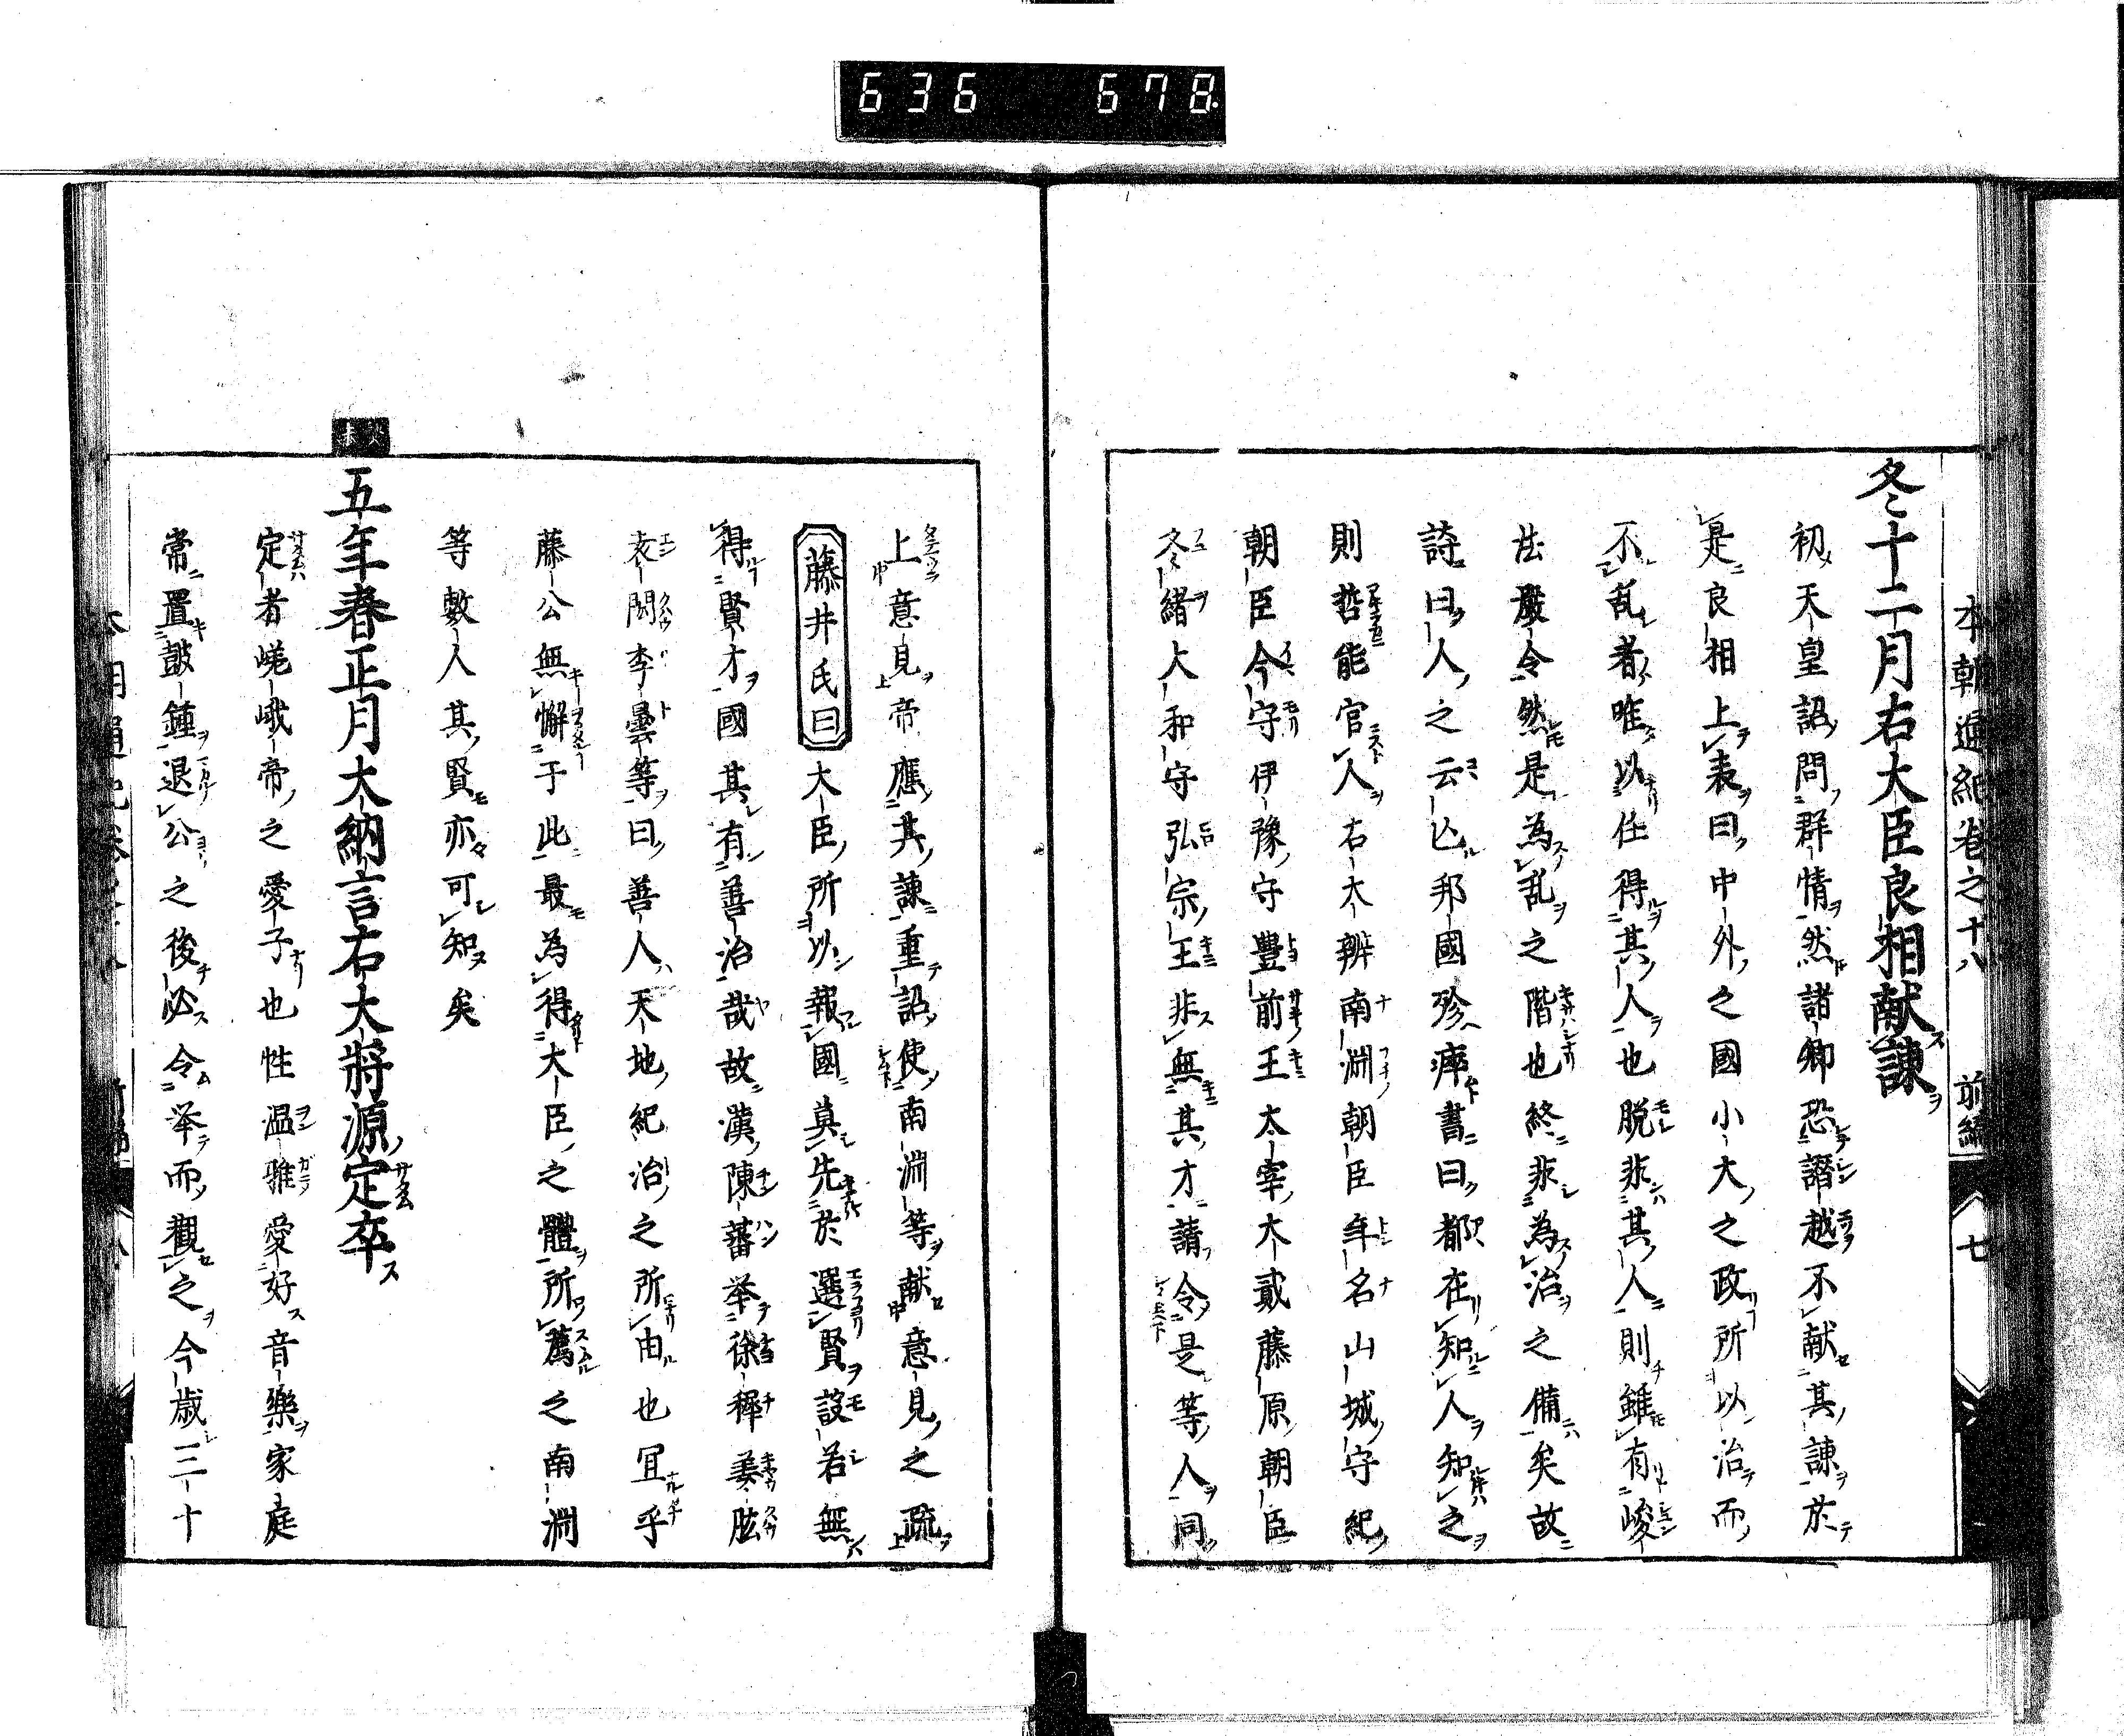 636 678
本朝通紀巻之十八 前編 七
冬十二月右大臣良相献諫
初天皇詔問群情然諸卿恐譖越不献其諫於
是良相上表曰中外之國小大之政所以治而
不乱者唯以任得其人也脱非其人則雖有峻
法嚴令然是為乱之階也終非為治之備矣故
詩曰人之云亾邦國殄瘁書曰都在知人知之
則哲能官人右大辨南淵朝臣年名山城守紀
朝臣今守伊豫守豐前王太宰大貳藤原朝臣
冬緒大和守弘宗王非無其才請令是等人同
上意見帝應其諫重詔使南淵等献意見之疏
藤井氏曰大臣所以報國莫先於選賢設若無
得賢才國其有善治哉故漢陳蕃举徐穉姜肱
袁閎李曇等曰善人天地紀治之所由也冝乎
藤公無懈于此最為得大臣之體所薦之南淵
等數人其賢亦可知矣
五年春正月大納言右大將源定卒
定者嵯峨帝之愛子也性温雅愛好音樂家庭
常置皷鍾退公之後必令举而觀之今歳三十